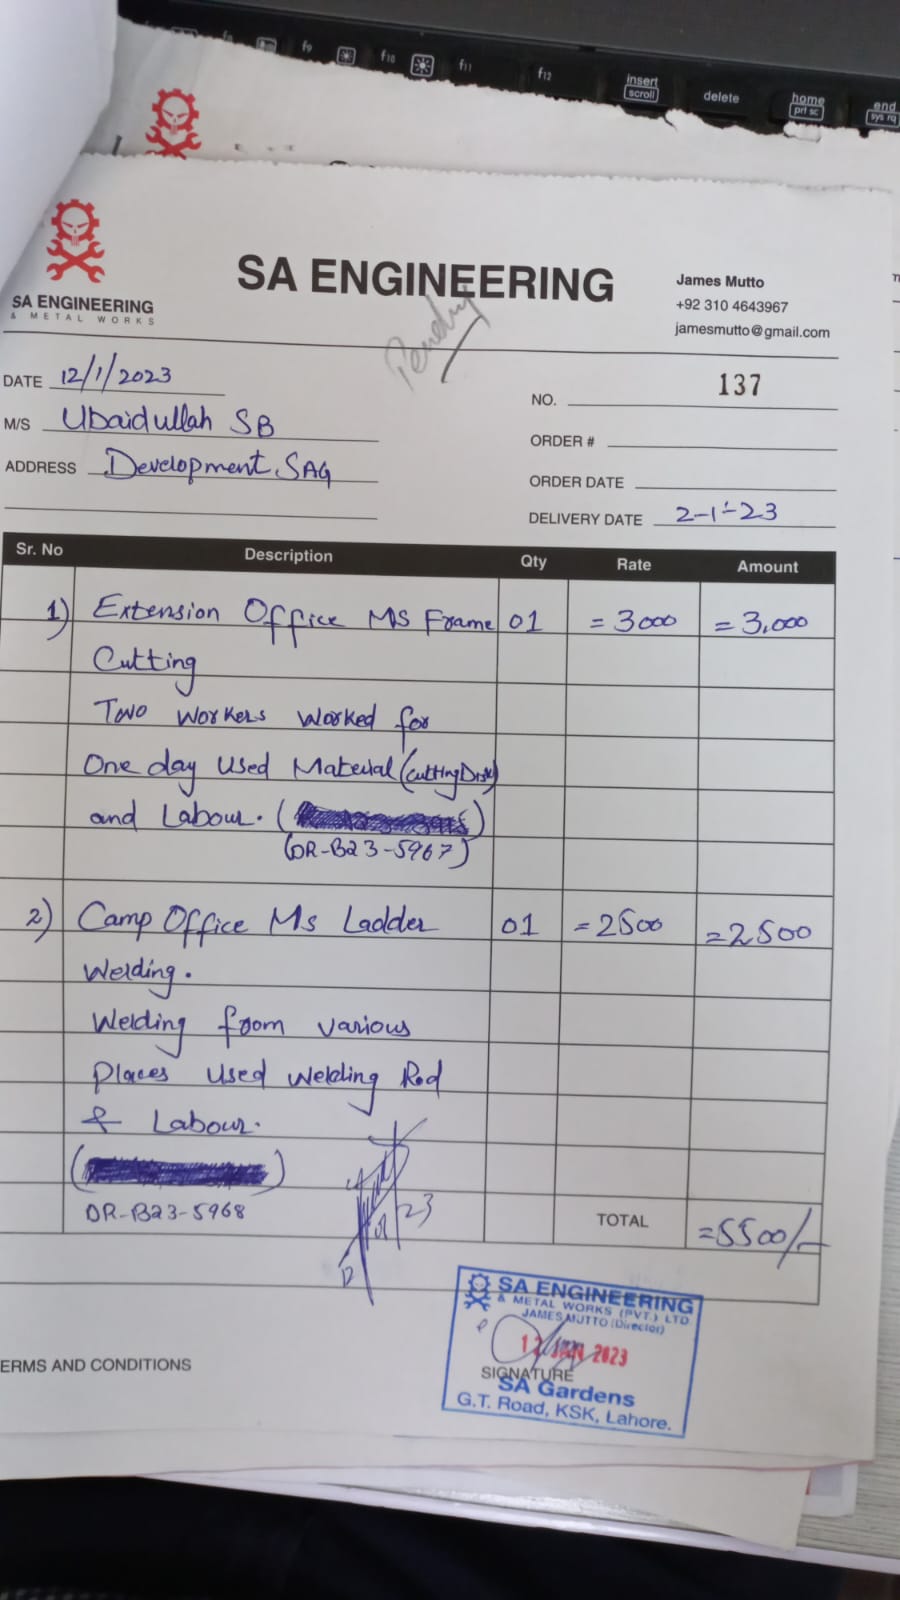 f9
f10
f11
f12
insert
scroll
delete
home
prt sc
end
sys rq
SA ENGINEERING
& METAL WORKS
SA ENGINEERING
James Mutto
+92 310 4643967
jamesmutto@gmail.com
Pending
DATE 12/1/2023
M/S Ubaidullah SB
ADDRESS Development, SAG
NO. 137
ORDER #
ORDER DATE
DELIVERY DATE 2-1-23
Sr. No Description Qty Rate Amount
1) Extension Office MS Frame 01 = 3000 = 3,000
Cutting
Two workers worked for
One day Used Material (Cutting Disk)
and Labour. (
(DR-B23-5967)
2) Camp Office Ms Ladder 01 = 2500 = 2500
Welding.
Welding from various
Places Used Welding Rod
& Labour.
DR-B23-5968
TOTAL =5500/-
SA ENGINEERING
& METAL WORKS (PVT.) LTD
JAMES MUTTO (Director)
12 JAN 2023
SIGNATURE
SA Gardens
G.T. Road, KSK, Lahore.
ERMS AND CONDITIONS